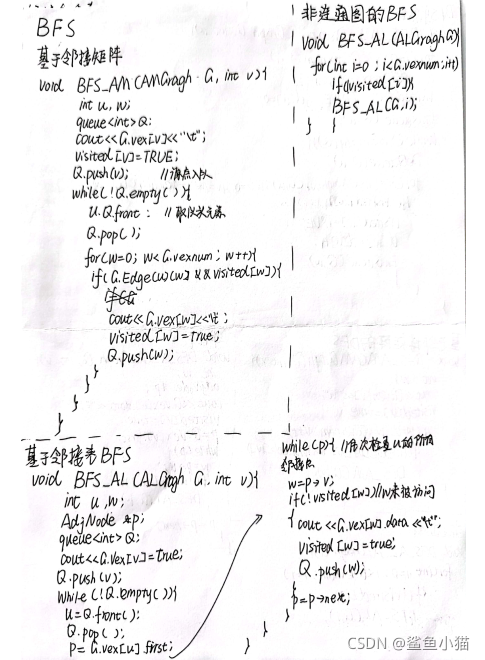 BFS
基于邻接矩阵
void BFS_AM(AMGragh G, int v){
int u, w;
queue<int>Q;
cout<<G.vex[v]<<"\t";
visited[v]=TRUE;
Q.push(v); //源点入队
while(!Q.empty()){
u.Q.front: //取队头元素
Q.pop();
for(w=0; w<G.vexnum; w++){
if(G.Edge[u][w] && visited[w]){
cout<<G.vex[w]<<"\t;
visited[w]=true;
Q.push(w);
}
}
}
}
非连通图的BFS
void BFS_AL(ALGragh G){
for(int i=0; i<G.vexnum;i++)
if(!visited[i])
BFS_AL(G,i);
} }
基于邻接表BFS
void BFS_AL(ALGragh G, int v){
int u,w;
AdjNode *p;
queue<int>Q;
cout<<G.vex[v]=true;
Q.push(v);
while(!Q.empty()){
u=Q.front();
Q.pop();
p=G.vex[u].first;
while(p){ //依次检查u的所有
邻接点
w=p→v;
if(!visited[w])//w未被访问
{
cout<<G.vex[w].data<<"\t";
visited[w]=true;
Q.push(w);
}
p=p→next;
}
}
}
CSDN @鲨鱼小猫